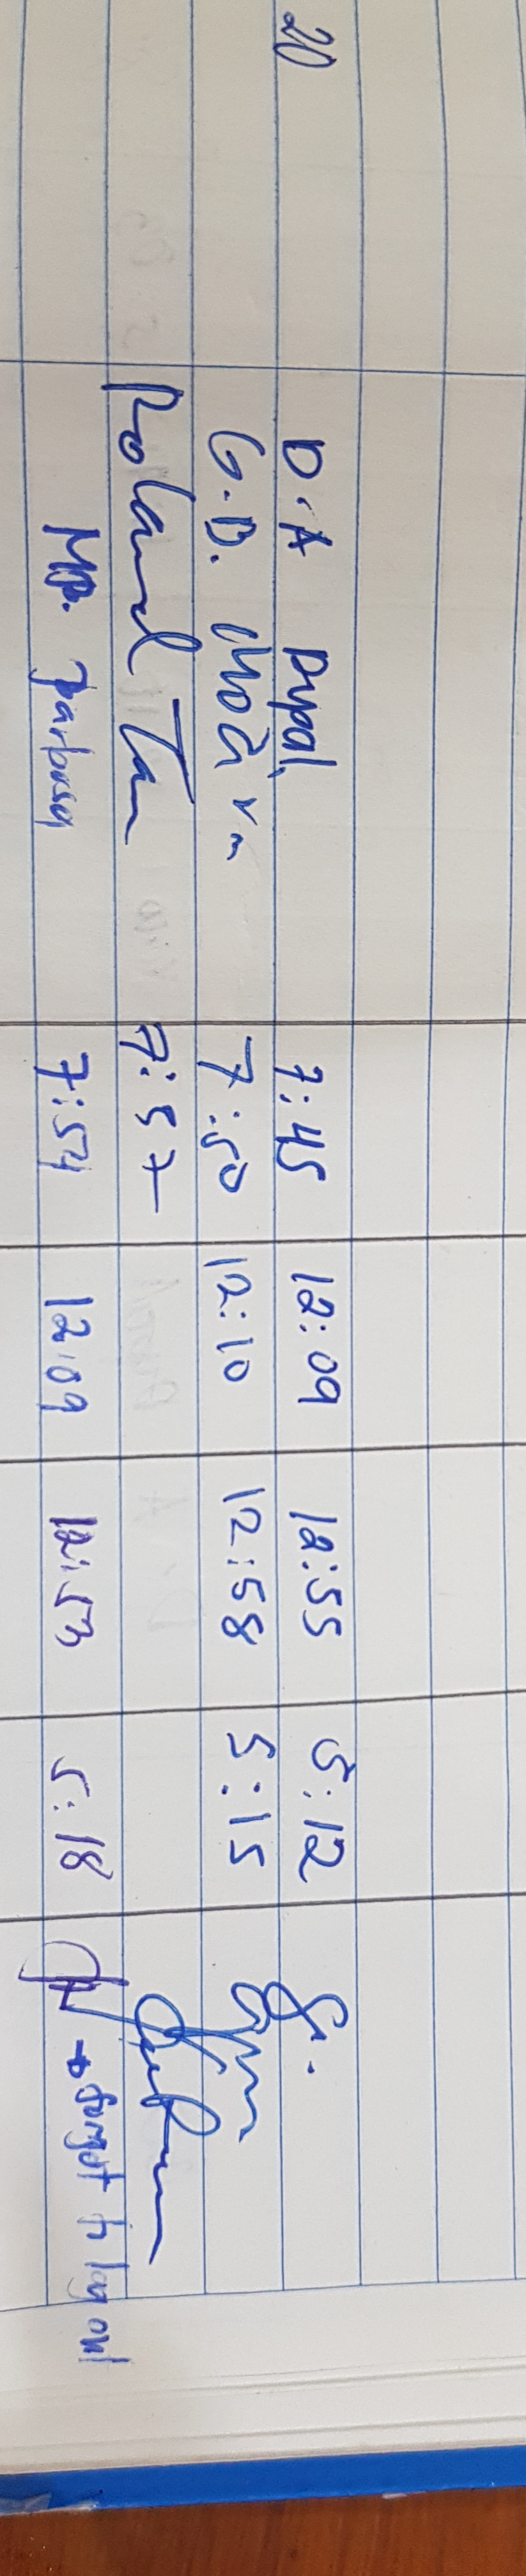 20 D.A Dypal, 7:45 12:09 12:55 5:12
G.D. 7:50 12:10 12:58 5:15
Roland Tan 7:57
MP. Barbosa 7:54 12:09 12:53 5:18 → forgot to log out